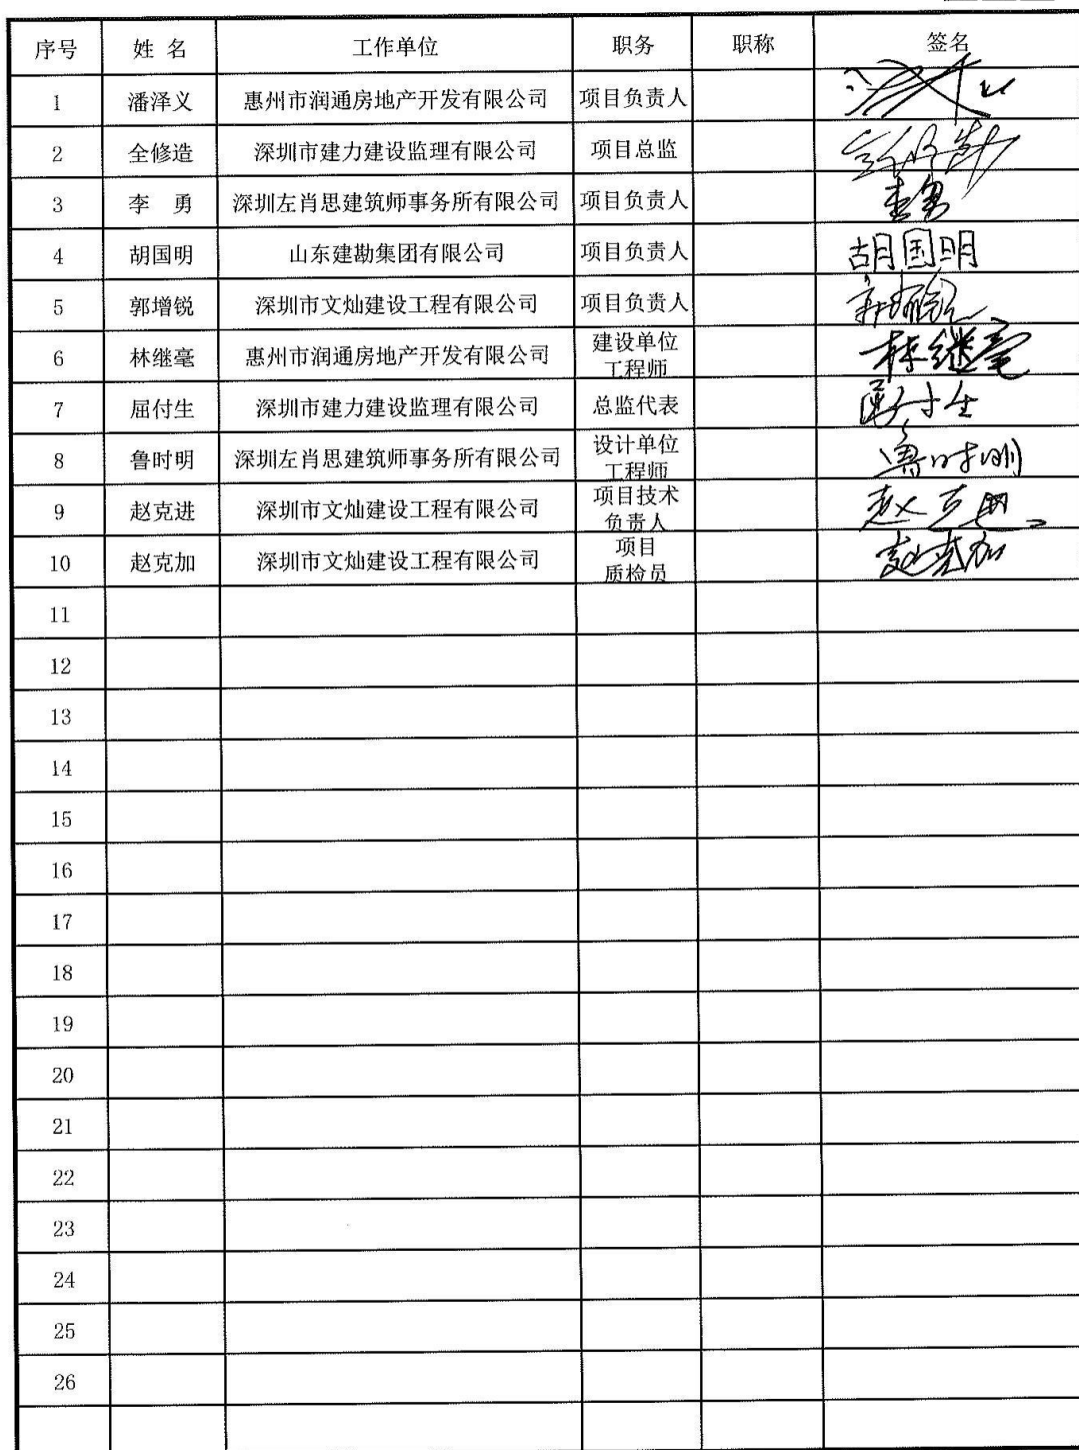 序号 姓 名 工作单位 职务 职称 签名
1 潘泽义 惠州市润通房地产开发有限公司 项目负责人
2 全修造 深圳市建力建设监理有限公司 项目总监
3 李 勇 深圳左肖思建筑师事务所有限公司 项目负责人 李勇
4 胡国明 山东建勘集团有限公司 项目负责人 胡国明
5 郭增锐 深圳市文灿建设工程有限公司 项目负责人
6 林继毫 惠州市润通房地产开发有限公司 建设单位 林继毫
工程师
7 屈付生 深圳市建力建设监理有限公司 总监代表 屈付生
8 鲁时明 深圳左肖思建筑师事务所有限公司 设计单位 鲁时明
工程师
9 赵克进 深圳市文灿建设工程有限公司 项目技术 赵克进
负责人
10 赵克加 深圳市文灿建设工程有限公司 项目 赵克加
质检员
11
12
13
14
15
16
17
18
19
20
21
22
23
24
25
26